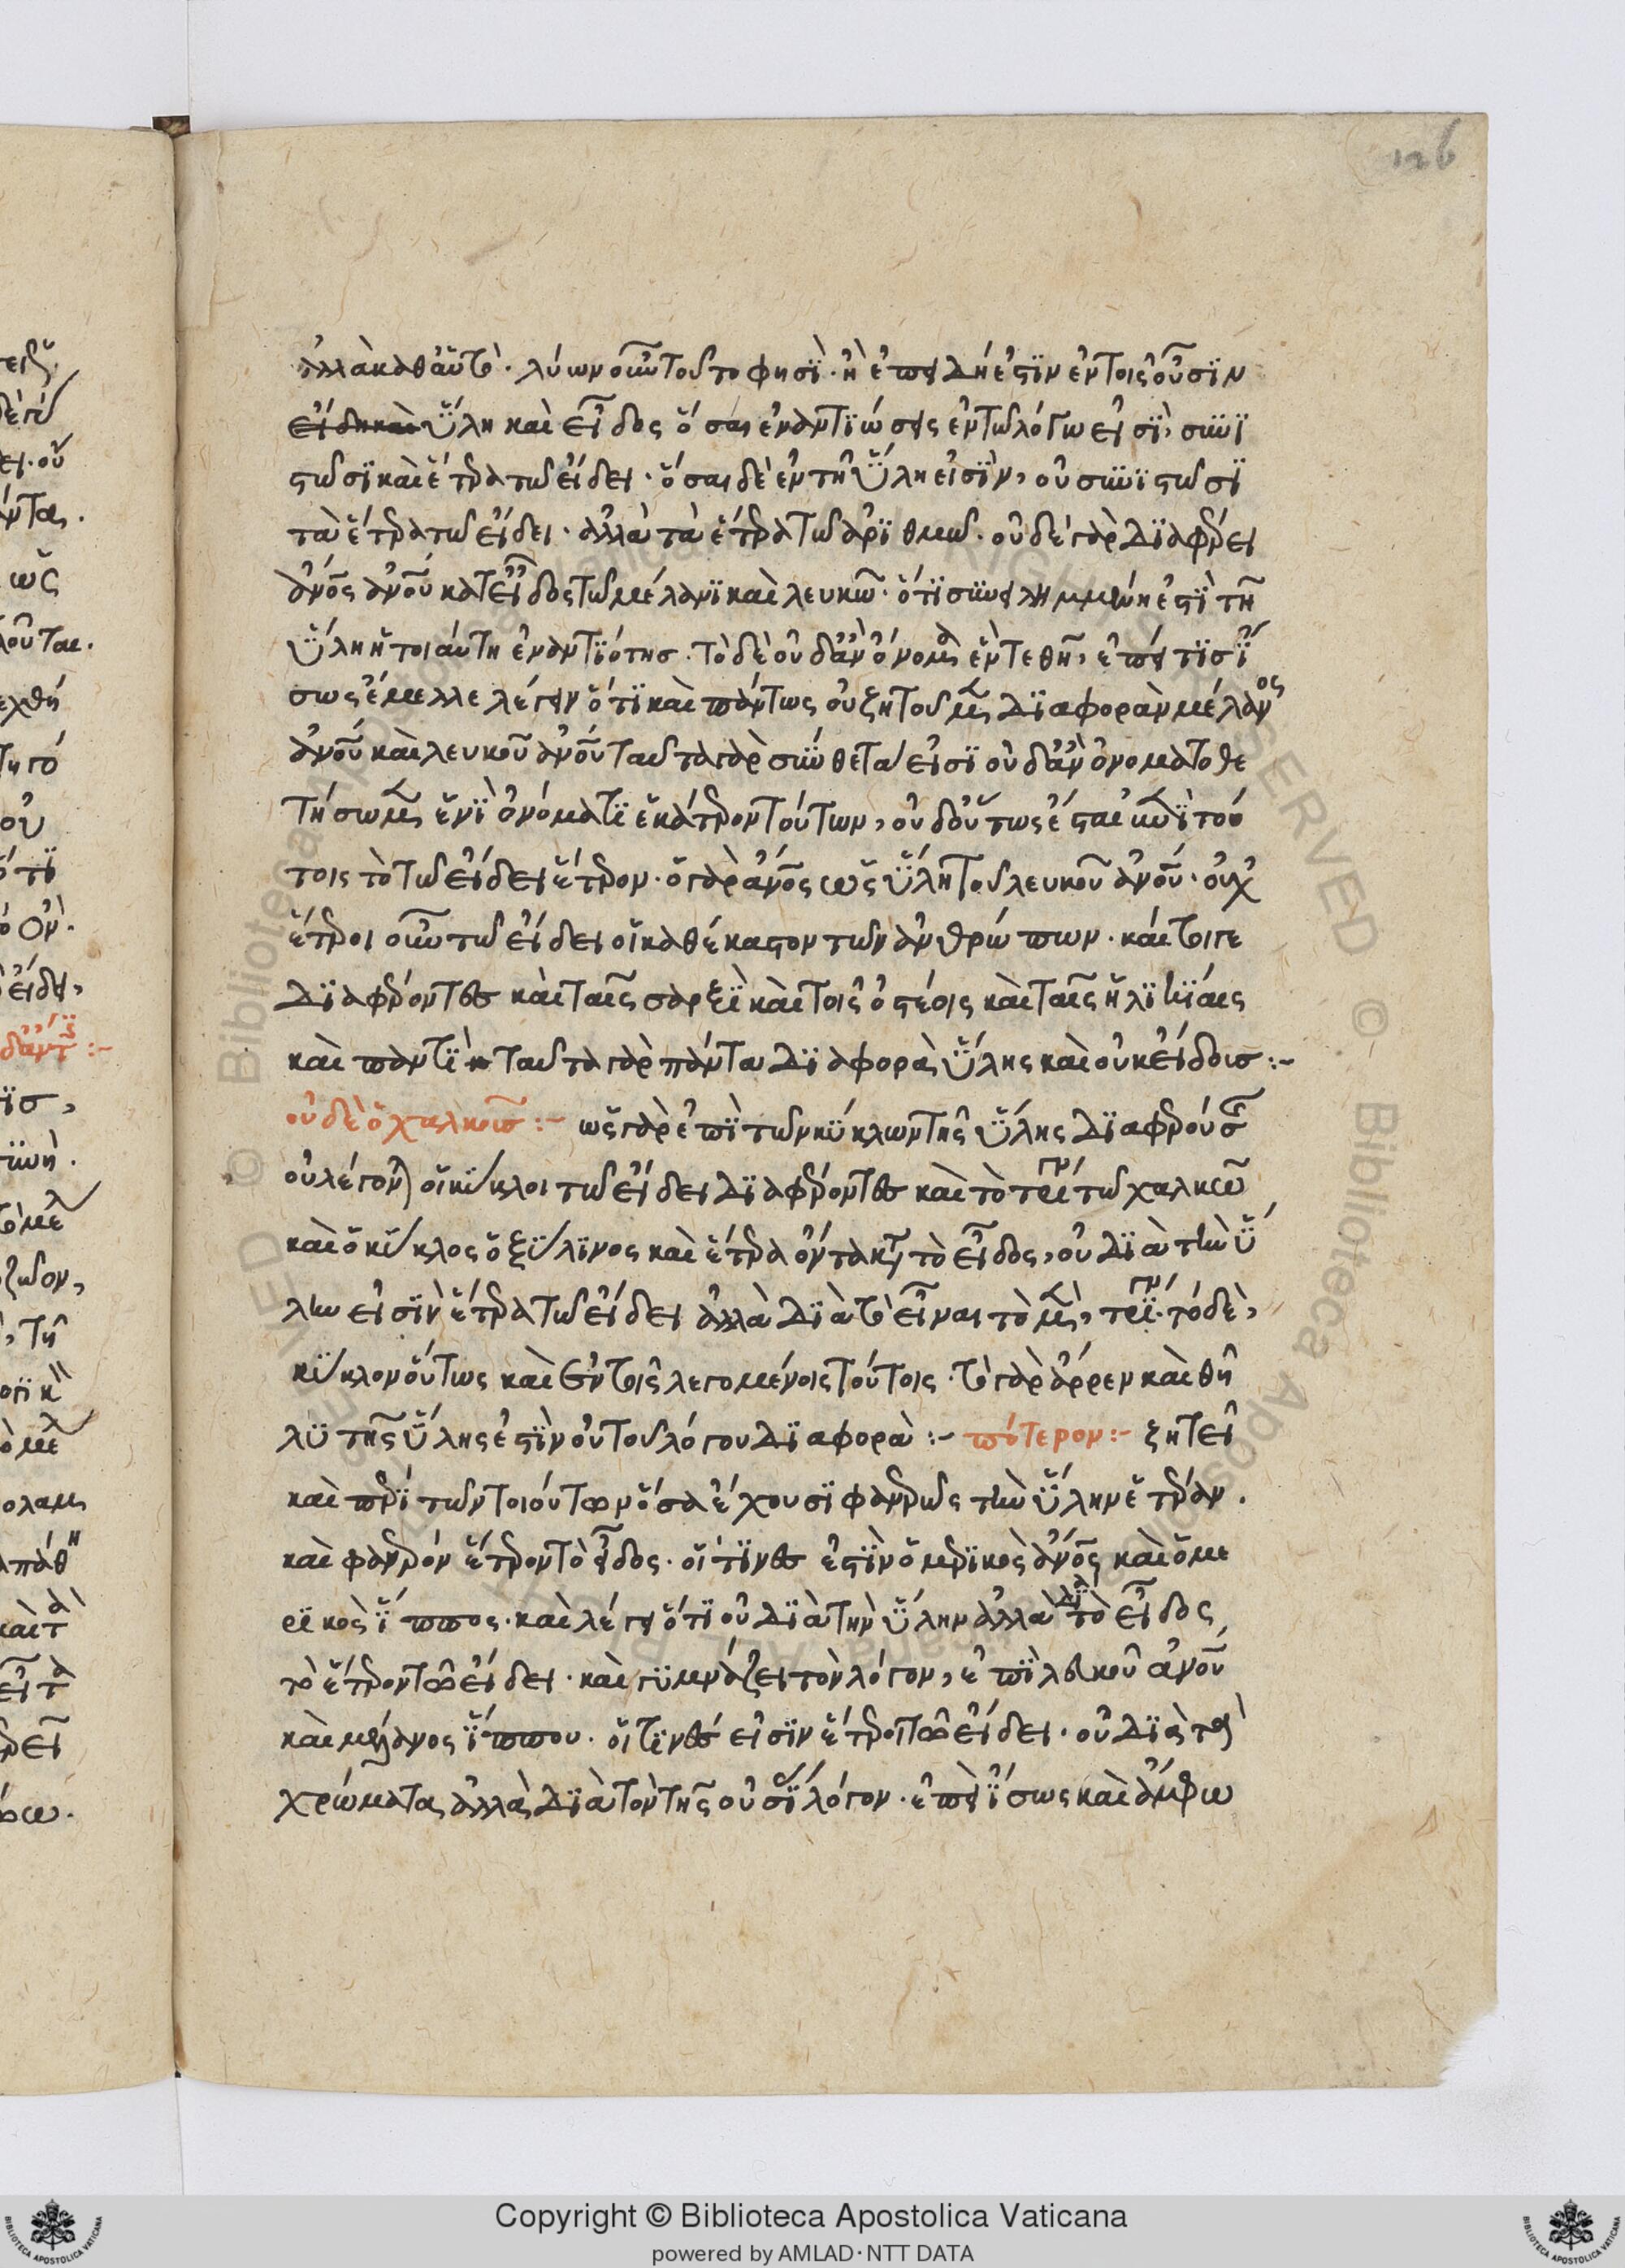 126
ἀλλὰ καθαὑτό. λύων οὖν τοῦτο φησὶ. ἢ ἐπειδή ἐστιν ἐν τοῖς οὖσιν
εἴδη καὶ ὕλη καὶ εἶδος ὅσαι ἐναντιώσεις ἐν τῷ λόγῳ εἰσὶ, συνι
στῶσι καὶ ἕτερα τῷ εἴδει. ὅσαι δὲ ἐν τῇ ὕλη εἰσὶν, οὐ συνιστῶσι
τὰ ἕτερα τῷ εἴδει. ἀλλὰ τὰ ἕτερα τῷ ἀριθμῷ. οὐδὲ γὰρ διαφέρει
ἀνος ἀνου κατ εἶδος τῷ μέλανι καὶ λευκῷ. ὅτι συνειλημμένη ἐστὶ τῇ
ὕλη ἡ τοιαύτη ἐναντιότησ. τὸ δὲ οὐδ ἂν ὄνομα ἓν τεθῇ, ἐπεί τισ ἴ
σως ἔμελλε λέγειν ὅτι καὶ πάντως οὐ ζητοῦμεν διαφορὰν μέλανος
ἀνου καὶ λευκοῦ ἀνου ταῦτα γὰρ σύνθετα εἰσὶ οὐδ ἂν ὀνοματοθε
τήσωμεν ἑνὶ ὀνόματι ἑκάτερον τούτων, οὐδ οὕτως ἔσται ἐπὶ τού
τοις τὸ τῷ εἴδει ἕτερον. ὁ γὰρ ἀνος ὡς ὕλη τοῦ λευκοῦ ἀνου. οὐχ
ἕτεροι οὖν τῷ εἴδει οἱ καθέκαστον τῶν ἀνθρώπων. καίτοιγε
διαφέροντες καὶ ταῖς σαρξὶ καὶ τοῖς ὀστέοις καὶ ταῖς ἡλικίαις
καὶ παντὶ ταῦτα γὰρ πάντα διαφορὰ ὕλης καὶ οὐκ εἴδους :-
οὐδὲ ὁ χαλκοῦσ :- ὡς γὰρ ἐπὶ τῶν κύκλων τῆς ὕλης διαφερούσης
οὐ λέγονται οἱ κύκλοι τῷ εἴδει διαφέροντες καὶ τὸ τρίγων τῷ χαλκῷ
καὶ ὁ κύκλος ὁ ξύλινος καὶ ἕτερα ὄντα κατὰ τὸ εἶδος, οὐ διὰ τὴν ὕ
λην εἰσὶν ἕτερα τῷ εἴδει ἀλλὰ διὰ τὸ εἶναι τὸ μὲν, τρίγων. τὸ δὲ,
κύκλον οὕτως καὶ ἐν τοῖς λεγομένοις τούτοις. τὸ γὰρ ἄρρεν καὶ θῆ
λυ τῆς ὕλης ἐστὶν οὐ τοῦ λόγου διαφορὰ :- πότερον :- ζητεῖ
καὶ περὶ τῶν τοιούτων ὅσα ἔχουσι φανερῶς τὴν ὕλην ἑτέραν.
καὶ φανερόν ἕτερον τὸ εἶδος. οἵτινες ἐστὶν ὁ μερικὸς ἀνος καὶ ὁ με
ρικὸς ἵππος. καὶ λέγει ὅτι οὐ διὰ τὴν ὕλην ἀλλὰ διὰ τὸ εἶδος
τὸ ἕτερον τῷ εἴδει. καὶ γυμνάζει τὸν λόγον, ἐπὶ λευκοῦ ἀνου
καὶ μέλανος ἵππου. οἵτινες εἰσὶν ἕτεροι τῷ εἴδει. οὐ διὰ τὰ
χρώματα, ἀλλὰ διὰ τὸν τῆς οὐσίας λόγον. ἐπεὶ ἴσως καὶ ἄμφω
Copyright © Biblioteca Apostolica Vaticana
powered by AMLAD·NTT DATA